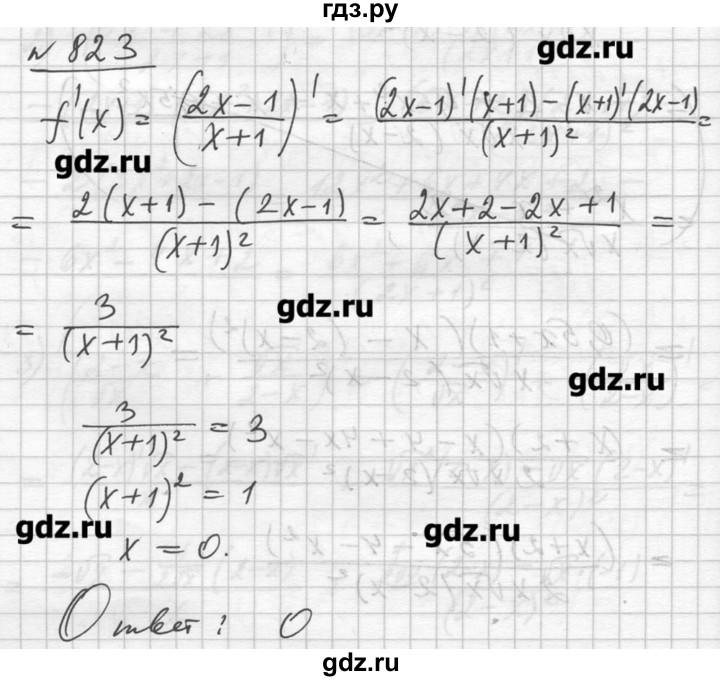 гдз.ру
№ 823
gdz.ru
f'(x) = ((2x-1)/(x+1))' = ((2x-1)'(x+1)-(x+1)'(2x-1))/(x+1)² =
gdz.ru
= (2(x+1)-(2x-1))/(x+1)² = (2x+2-2x+1)/(x+1)² =
gdz.ru
= 3/(x+1)²
gdz.ru
3/(x+1)² = 3
(x+1)² = 1
gdz.ru
gdz.ru
x = 0.
Ответ: 0
gdz.ru